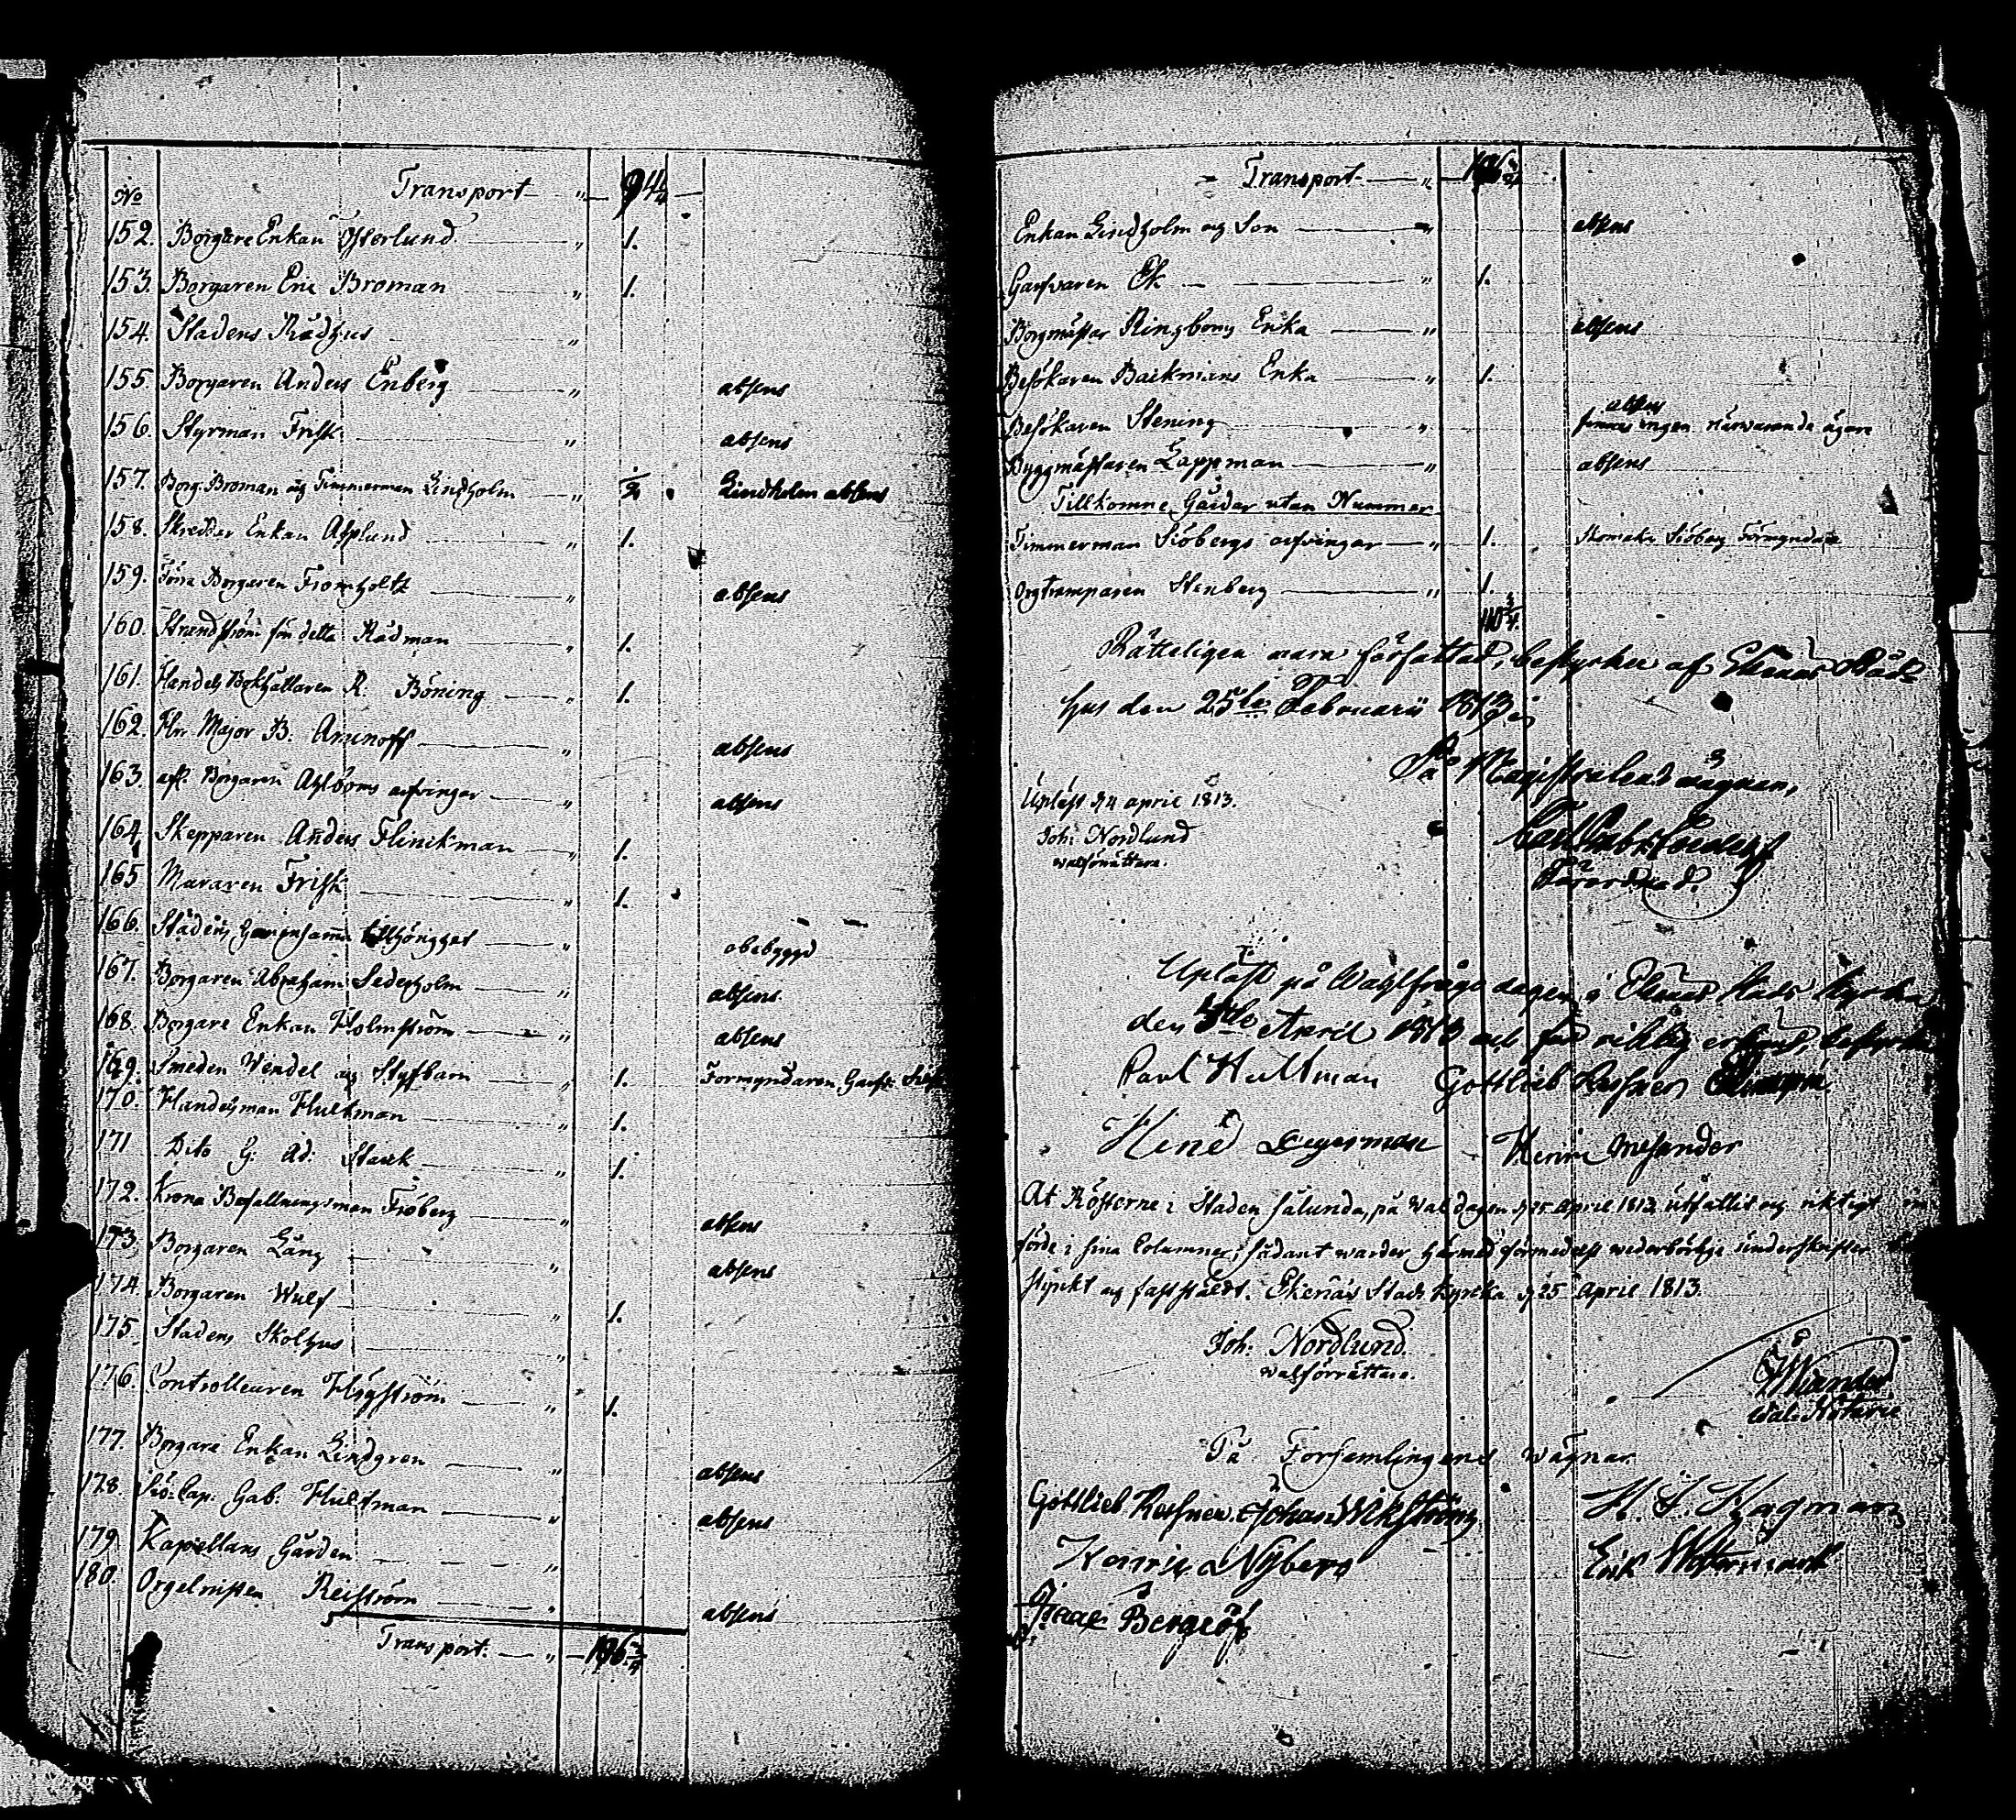 No Transport — " — 94 1/4 —
152. Borgare Enkan Österlund — " 1.
153. Borgaren Eric Broman — " 1.
154. Stadens Rådhus "
155. Borgaren Anders Enberg — " absens
156. Styrman Frisk — " absens
157. Borg. Broman og Timmerman Lindholm — " 1/2 Lindholm absens
158. Skreddar Enkan Asplund — " 1.
159. Förra Borgaren Fromholtz — " absens
160. Strandström för detta Rådman — " 1.
161. Handels Bokhållaren R: Böning — " 1.
162. Hr Major B: Aminoff — " absens
163. afl. Borgaren Ahlboms arfvingar — " absens
164. Skepparen Anders Flinckman — " 1.
165 Muraren Frisk — " 1.
166. Stadens Gemensamma tillhörighet — " obebyggd
167. Borgaren Abraham Sederholm — " absens
168. Borgare Enkan Holmström — " absens
169. Smeden Wendel og Styfbarn — " 1. Formyndaren Garfv.
170. Handelsman Hultman — " 1.
171 Dito G: Ad: Starck — " 1.
172. Krono Befallningsman Fröberg — " absens
173. Borgaren Lång — " absens
174. Borgaren Wulf — " 1.
175. Stadens Skolhus — "
176. Controlleuren Högström — " 1.
177. Borgare Enkan Lindgren — " absens
178. Siö-Cap: Gab: Hultman — " absens
179. Kapellans Gården — "
180. Orgelnisten Reiström — " absens
Transport. — " — 106 3/4
Transport — " — 106 3/4
Enkan Lindholm og Son — " absens
Garfvaren Ek — " 1.
Borgmästar Ringboms Enka — " absens
Besökaren Backmans Enka — " 1.
Besökaren Stening — " absens
finnes ingen närvarande ägare
Byggmästaren Lappman — " absens
Tillkomne Gårdar utan Nummer
Timmerman Siöbergs arfvingar — " 1. Skomak. Siöberg Förmyndare
Orgtramparen Stenberg — " 1.
110 3/4.
Rätteligen vara författad, bestyrker af Ekenäs Råd-
hus den 25te Februarii 1813
På Magistratens vägnar,
Upläst d 4 april 1813.
Joh: Nordlund
valförrättare.
Upläst på Wahlfrågo dagen i Ekenäs Stads Kyrka
den April 1813 och för riktig erkänd, bestyrka
Paul Hultman Gottlieb Ressner
Henric Mesander
At Rösterne i Staden sålunda, på Wal dagen d 25 April 1813 utfallit og riktigt in-
förde i sina Columner; sådant warder härmed förmedelst wederbörlige underskrifter
styrkt og faststäldt. Ekenäs Stads Kyrka d 25 April 1813.
Joh: Nordlund.
valförrättare.
Val-Notarie
På Forsamlingens wägnar
Gottlieb Ressner. Johan Wikström H. J. Hagman
Henric Nyberg Erik Westermark
Isaac Berglöf